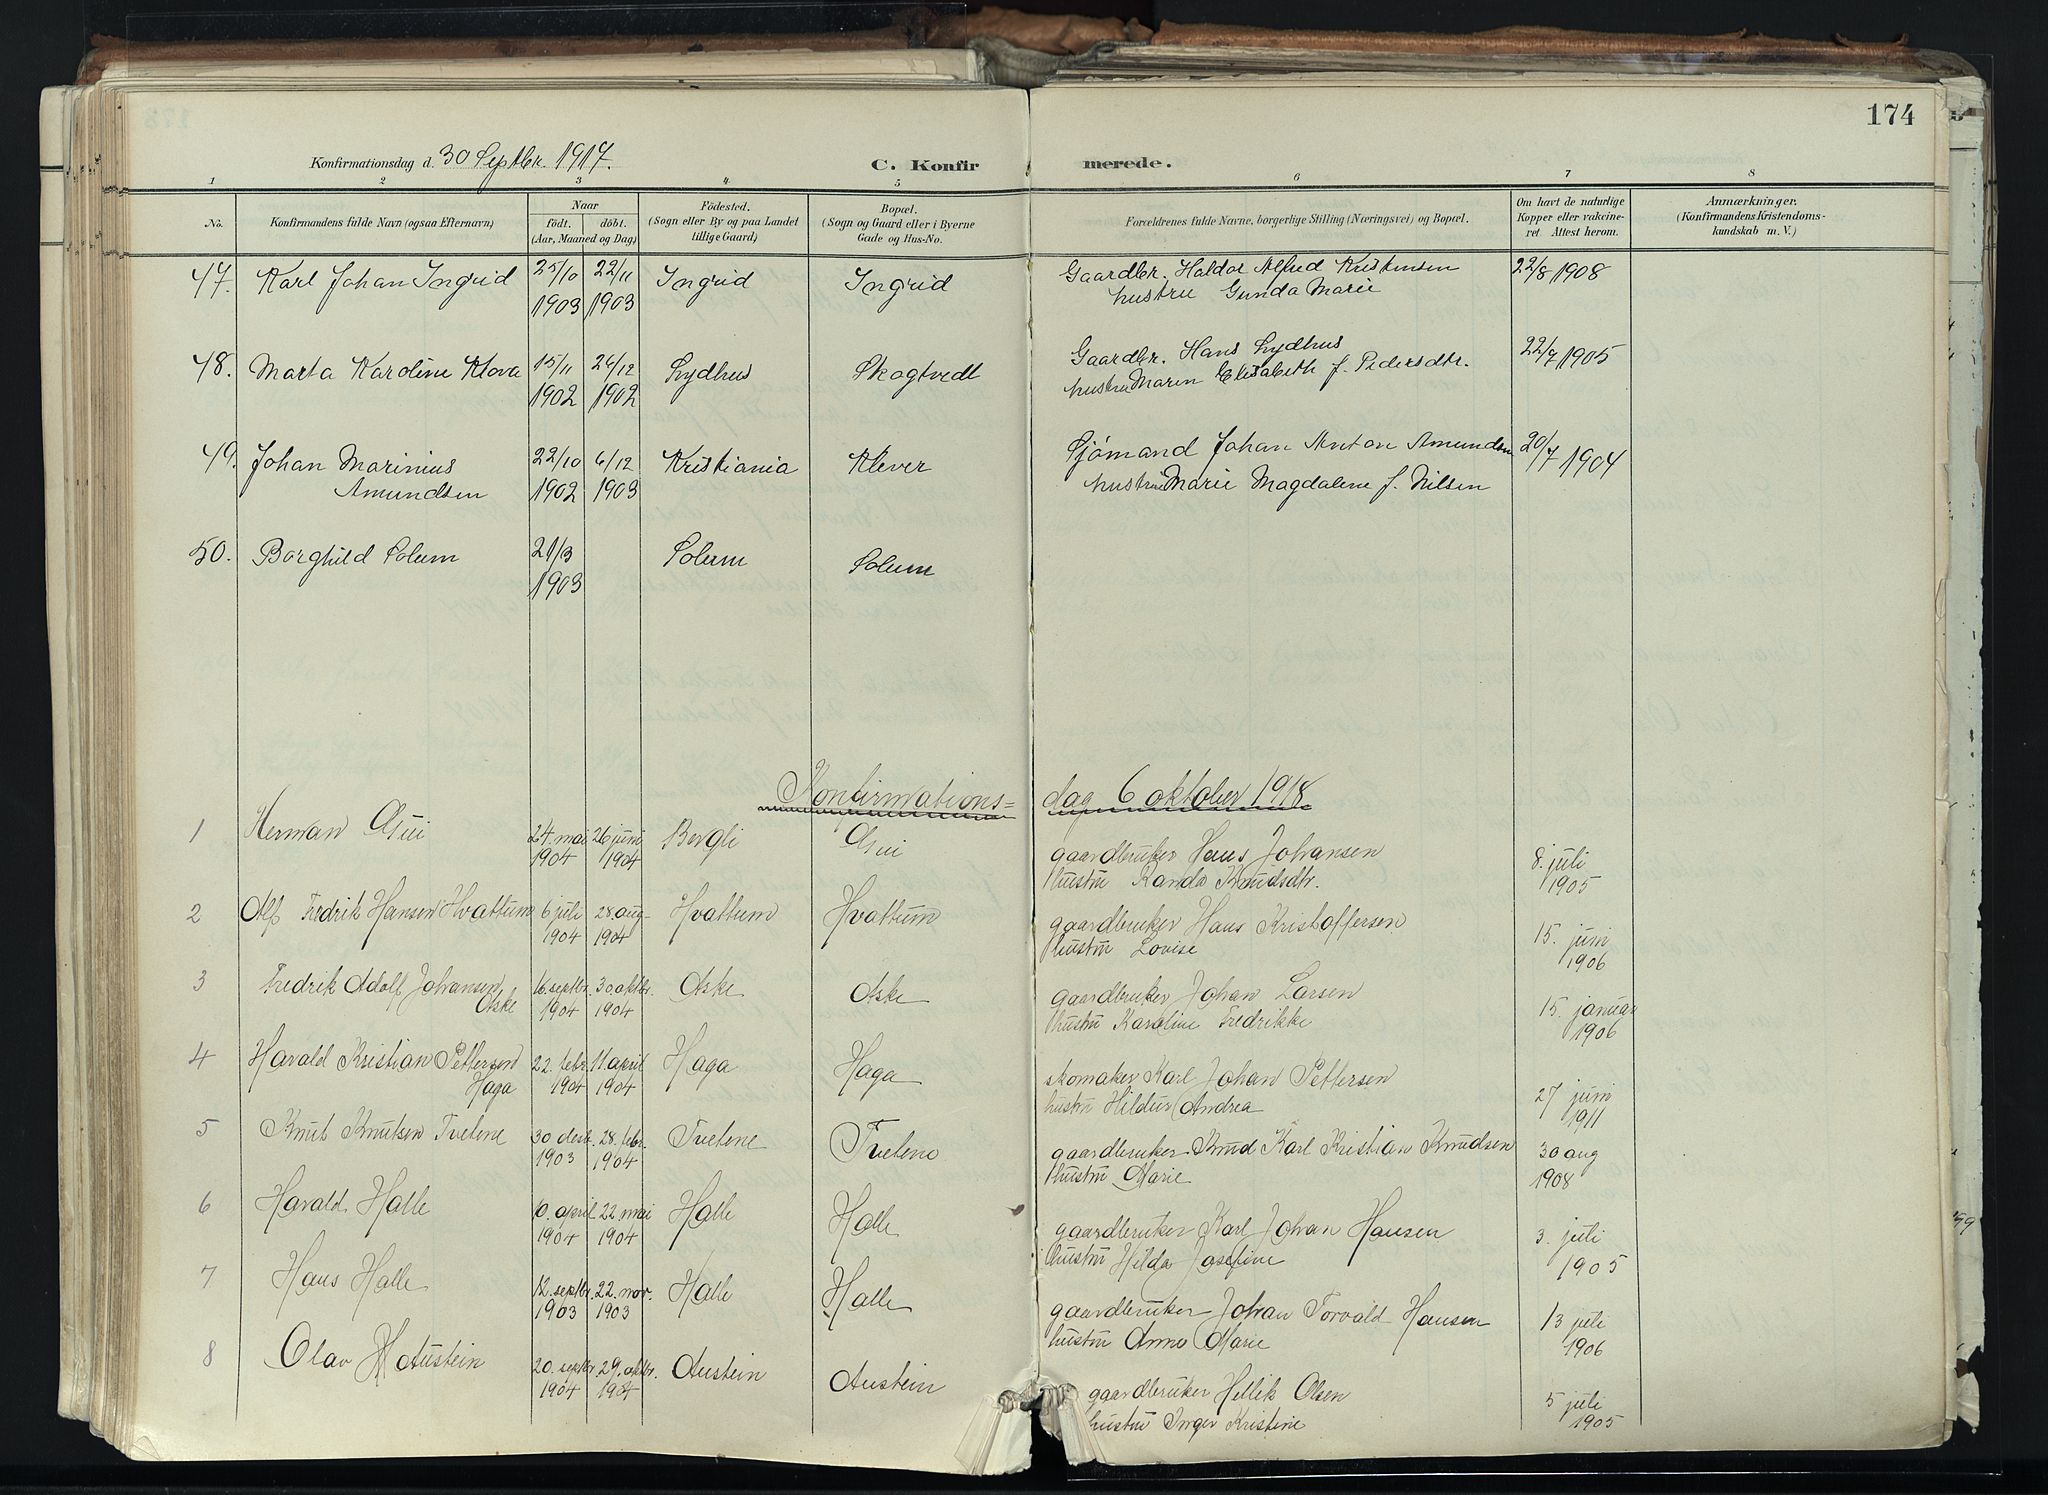 174
Konfirmationsdag d. 30 Septbr. 1917.
C. Konfirmerede.
1 2 3 4 5 6 7 8
No.
Konfirmandens fulde Navn (ogsaa Efternavn)
Naar
födt. döbt.
(Aar, Maaned og Dag)
Födested.
(Sogn eller By og paa Landet
tillige Gaard)
Bopæl.
(Sogn og Gaard eller i Byerne
Gade og Hus-No.
Forældrenes fulde Navne, borgerlige Stilling (Næringsvei) og Bopæl.
Om havt de naturlige
Kopper eller vakcine-
ret. Attest herom.
Anmærkninger.
(Konfirmandens Kristendoms-
kundskab m. V.)
47. Karl Johan Ingrid 25/10 22/11 Ingrid Ingrid Gaardbr. Haldor Alfred Kristensen 22/8 1908
1903 1903 hustru Gunda Marie
48. Marta Karoline Klova 15/11 26/12 Lydhus Skogtvedt Gaardbr. Hans Lydhus 22/7 1905
1902 1902 hustru Maren Elisabeth f. Pedersdtr.
49. Johan Marinius 22/10 6/12 Kristiania Klever Sjømand Johan Anton Amundsen 20/7 1904
Amundsen 1902 1903 hustru Marie Magdalene f. Nilsen
50. Borghild Solum 21/3 Solum Solum
1903
Konfirmations=dag 6 oktober 1918.
1 Herman Gui 24. mai 26 juni Bergli Gui gaardbruker Hans Johansen 8. juli
1904 1904 hustru Randa Knudsdtr. 1905
2 Alf Fredrik Hansen Hvattum 6 juli 28. aug. Hvattum Hvattum gaardbruker Hans Kristoffersen 15. juni
1904 1904 hustru Lovise 1906
3 Fredrik Adolf Johansen 16. septbr. 30. oktbr. Aske Aske gaardbruker Johan Larsen 15. januar
Aske 1904 1904 hustru Karoline Fredrikke 1906
4 Harald Kristian Pettersen 22. febr. 11. april Haga Haga skomaker Karl Johan Pettersen 27 juni
Haga 1904 1904 hustru Hildur Andrea 1911
5 Knut Knutsen Tvetene 30 desb. 28. febr. Tvetene Tvetene gaardbruker Knud Karl Kristian Knudsen 30 aug
1903 1904 hustru Marie 1908
6 Harald Halle 10. april 22. mai Halle Halle gaardbruker Karl Johan Hansen 3. juli
1904 1904 hustru Hilda Josefine 1905
7 Hans Halle 12. septbr. 22. nov. Halle Halle gaardbruker Johan Torvald Hansen 13 juli
1903 1903 hustru Anna Marie 1906
8 Olav H Austein 20. septbr 29. oktbr. Austein Austein gaardbruker Hellik Olsen 5 juli
1904 1904 hustru Inger Kristine 1905